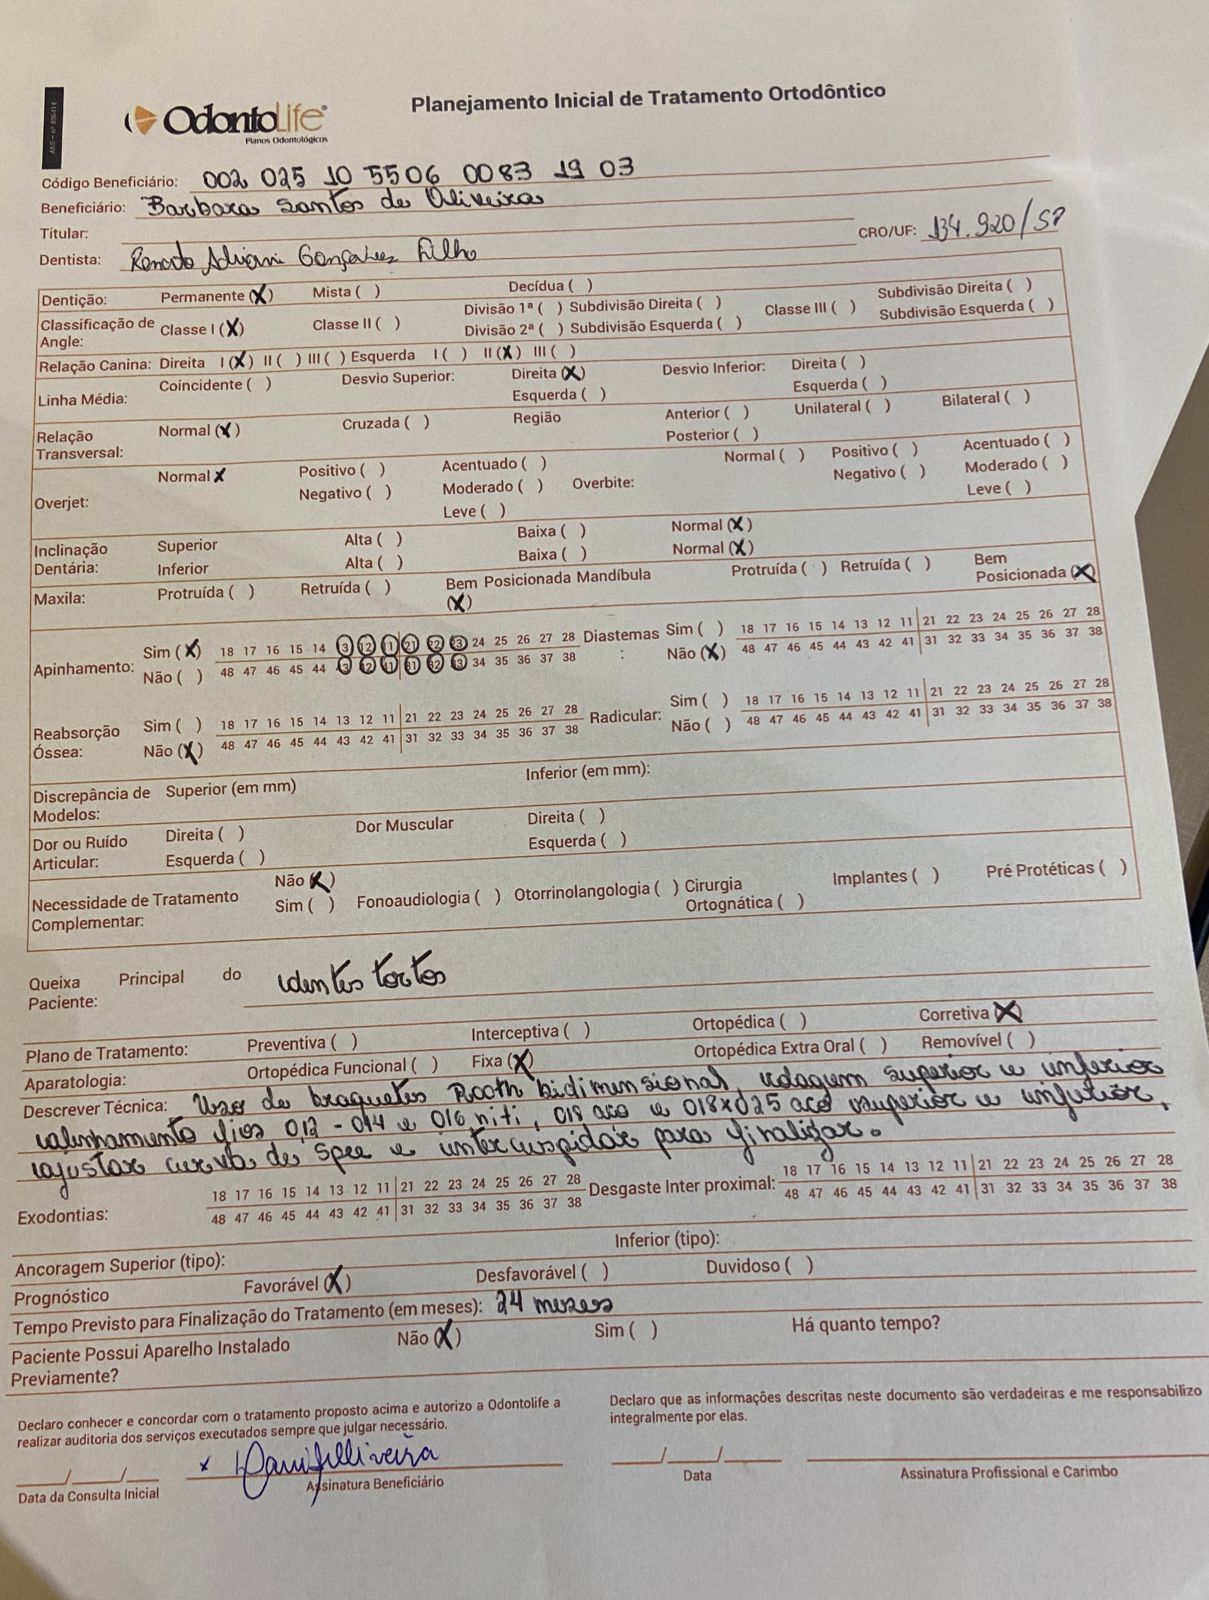 Planejamento Inicial de Tratamento Ortodôntico
OdontoLife
Planos Odontológicos
Código Beneficiário: 002 025 10 5506 0083 19 03
Beneficiário: Barbara Santos de Oliveira
Titular:
CRO/UF: 134.920/SP
Dentista: Renato Adriani Gonçalves Filho
Dentição: Permanente (X) Mista ( ) Decídua ( )
Classificação de Angle: Classe I (X) Classe II ( ) Divisão 1ª ( ) Subdivisão Direita ( ) Classe III ( ) Subdivisão Direita ( )
Divisão 2ª ( ) Subdivisão Esquerda ( ) Subdivisão Esquerda ( )
Relação Canina: Direita I (X) II ( ) III ( ) Esquerda I ( ) II (X) III ( )
Linha Média: Coincidente ( ) Desvio Superior: Direita (X) Desvio Inferior: Direita ( )
Esquerda ( ) Esquerda ( )
Relação Transversal: Normal (X) Cruzada ( ) Região Anterior ( ) Unilateral ( ) Bilateral ( )
Posterior ( )
Overjet: Normal X Positivo ( ) Acentuado ( ) Overbite: Normal ( ) Positivo ( ) Acentuado ( )
Negativo ( ) Moderado ( ) Negativo ( ) Moderado ( )
Leve ( ) Leve ( )
Inclinação Dentária: Superior Alta ( ) Baixa ( ) Normal (X)
Inferior Alta ( ) Baixa ( ) Normal (X)
Maxila: Protruída ( ) Retruída ( ) Bem Posicionada (X) Mandíbula Protruída ( ) Retruída ( ) Bem Posicionada (X)
Apinhamento: Sim (X) 18 17 16 15 14 13 12 11 21 22 23 24 25 26 27 28 Diastemas : Sim ( ) 18 17 16 15 14 13 12 11 21 22 23 24 25 26 27 28
Não ( ) 48 47 46 45 44 43 42 41 31 32 33 34 35 36 37 38 Não (X) 48 47 46 45 44 43 42 41 31 32 33 34 35 36 37 38
Reabsorção Óssea: Sim ( ) 18 17 16 15 14 13 12 11 21 22 23 24 25 26 27 28 Radicular: Sim ( ) 18 17 16 15 14 13 12 11 21 22 23 24 25 26 27 28
Não (X) 48 47 46 45 44 43 42 41 31 32 33 34 35 36 37 38 Não ( ) 48 47 46 45 44 43 42 41 31 32 33 34 35 36 37 38
Discrepância de Modelos: Superior (em mm) Inferior (em mm):
Dor ou Ruído Articular: Direita ( ) Dor Muscular Direita ( )
Esquerda ( ) Esquerda ( )
Necessidade de Tratamento Complementar: Não (X)
Sim ( ) Fonoaudiologia ( ) Otorrinolangologia ( ) Cirurgia Ortognática ( ) Implantes ( ) Pré Protéticas ( )
Queixa Principal do Paciente: dentes tortos
Plano de Tratamento: Preventiva ( ) Interceptiva ( ) Ortopédica ( ) Corretiva (X)
Aparatologia: Ortopédica Funcional ( ) Fixa (X) Ortopédica Extra Oral ( ) Removível ( )
Descrever Técnica: Uso de braquetes Rooth bidimensional, colagem superior e inferior
alinhamento fios 012 - 014 e 016 niti, 018 aco e 018x025 aco superior e inferior,
ajustar curva de spee e intercuspidar para finalizar.
Exodontias: 18 17 16 15 14 13 12 11 21 22 23 24 25 26 27 28 Desgaste Inter proximal: 18 17 16 15 14 13 12 11 21 22 23 24 25 26 27 28
48 47 46 45 44 43 42 41 31 32 33 34 35 36 37 38 48 47 46 45 44 43 42 41 31 32 33 34 35 36 37 38
Ancoragem Superior (tipo): Inferior (tipo):
Prognóstico Favorável (X) Desfavorável ( ) Duvidoso ( )
Tempo Previsto para Finalização do Tratamento (em meses): 24 meses
Paciente Possui Aparelho Instalado Previamente? Não (X) Sim ( ) Há quanto tempo?
Declaro conhecer e concordar com o tratamento proposto acima e autorizo a Odontolife a
realizar auditoria dos serviços executados sempre que julgar necessário.
Declaro que as informações descritas neste documento são verdadeiras e me responsabilizo
integralmente por elas.
___/___/___ x
Data da Consulta Inicial Assinatura Beneficiário
___/___/___
Data Assinatura Profissional e Carimbo